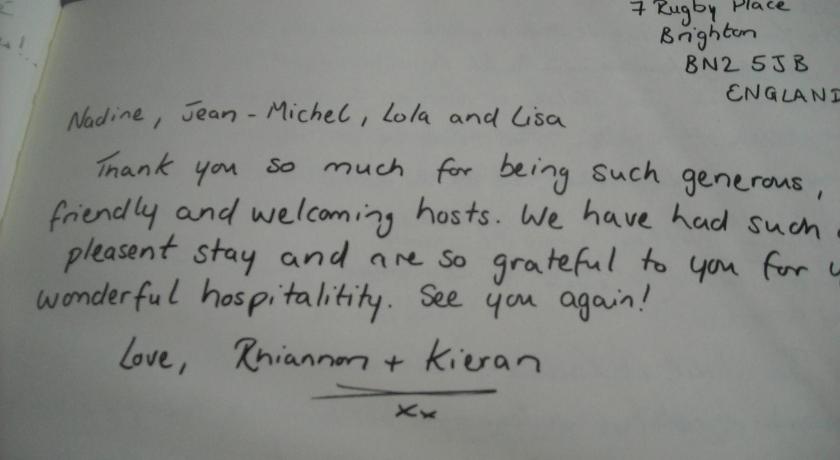 7 Rugby Place
Brighton
BN2 5JB
ENGLAND
Nadine, Jean-Michel, Lola and Lisa
Thank you so much for being such generous,
friendly and welcoming hosts. We have had such
pleasent stay and are so grateful to you for
wonderful hospitalitity. See you again!
Love, Rhiannon + Kieran
xx